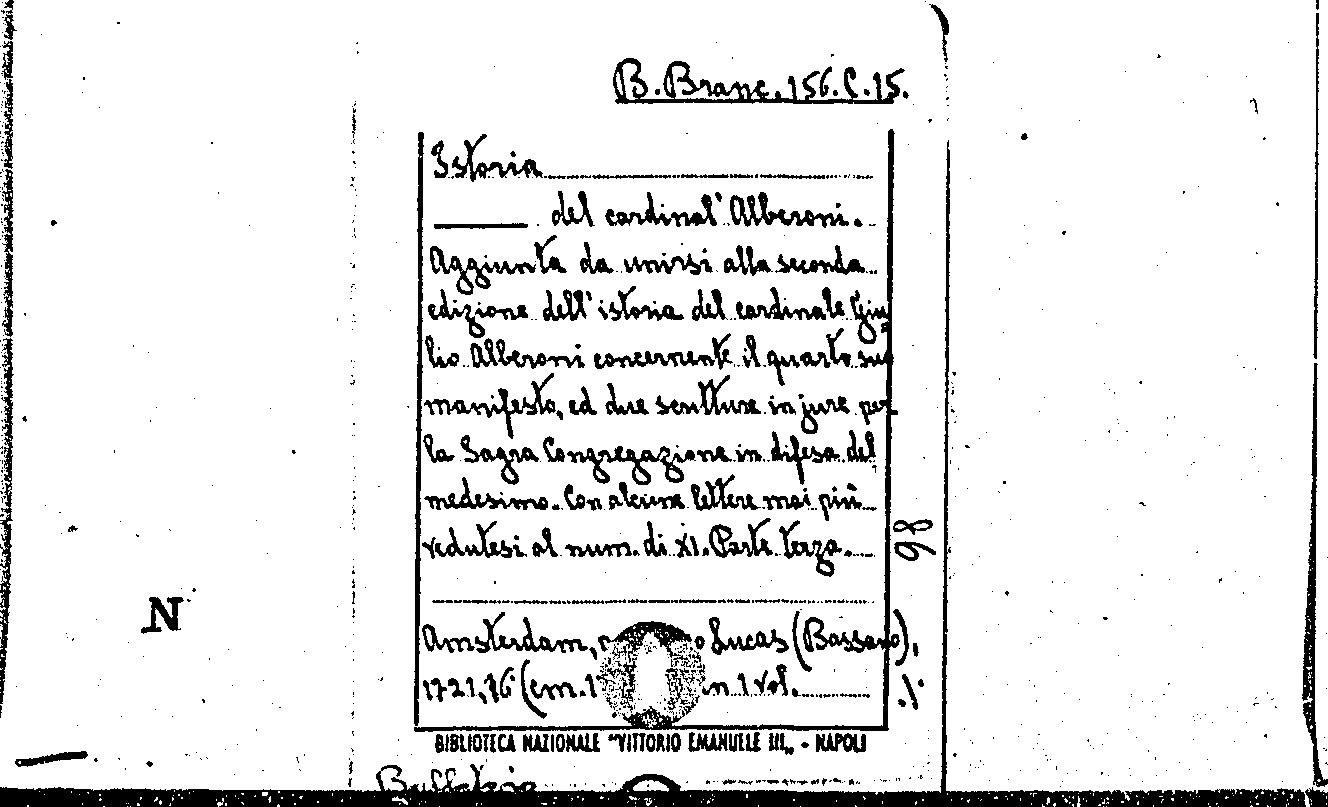 B. Branc. 156.C.15.
Istoria
del cardinal' Alberoni.
Aggiunta da unirsi alla seconda
edizione dell' istoria del cardinale Giu=
lio Alberoni concernente il quarto suo
manifesto, ed due scritture in jure per
la Sagra Congregazione in difesa del
medesimo. Con alcune lettere mai più
vedutesi al num. di XI. Parte terza.
98
N
Amsterdam, Lucas (Bassano),
1721, 16° (cm. 1 in 1 vol. ./.
BIBLIOTECA NAZIONALE "VITTORIO EMANUELE III„ - NAPOLI